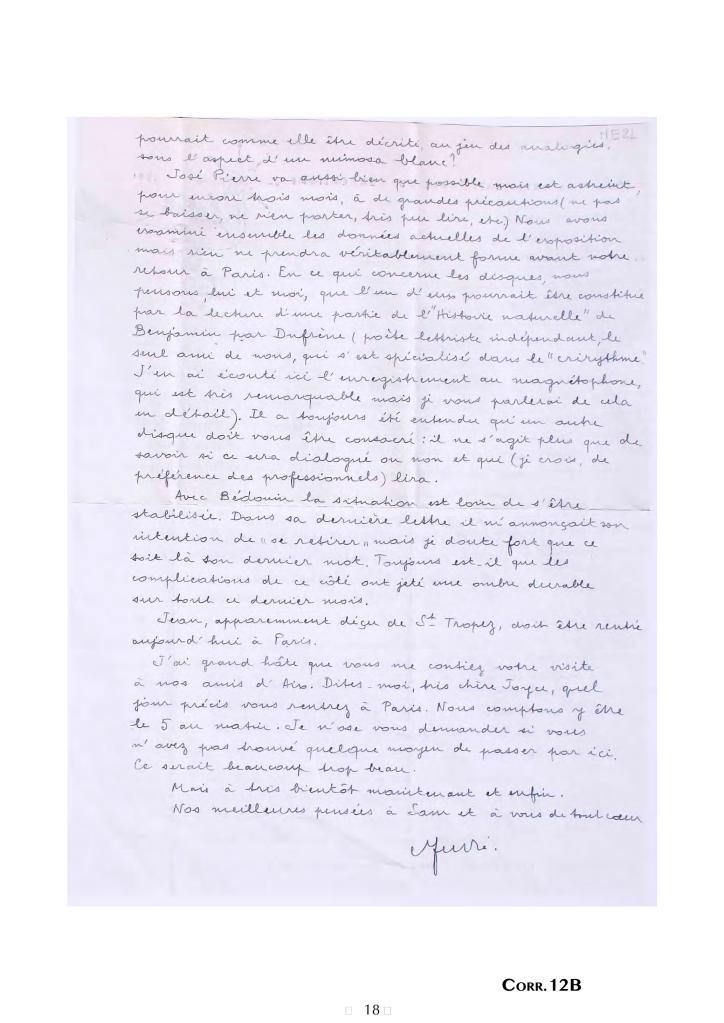 ME2L
pourrait comme elle être décrite, au jeu des analogies,
sous l'aspect d'un mimosa blanc?
José Pierre va aussi bien que possible mais est astreint,
pour encore trois mois, à de grandes précautions (ne pas
se baisser, ne rien porter, très peu lire, etc) Nous avons
examiné ensemble les données actuelles de l'exposition
mais rien ne prendra véritablement forme avant notre
retour à Paris. En ce qui concerne les disques, nous
pensons, lui et moi, que l'un d'eux pourrait être constitué
par la lecture d'une partie de l'"Histoire naturelle" de
Benjamin par Dufrêne (poète lettriste indépendant, le
seul ami de nous, qui s'est spécialisé dans le "crirythme"
J'en ai écouté ici l'enregistrement au magnétophone,
qui est très remarquable mais je vous parlerai de cela
en détail). Il a toujours été entendu qu'un autre
disque doit vous être consacré : il ne s'agit plus que de
savoir si ce sera dialogué ou non et qui (je crois, de
préférence des professionnels) lira.
Avec Bédouin la situation est loin de s'être
stabilisée. Dans sa dernière lettre il m'annonçait son
intention de "se retirer" mais je doute fort que ce
soit là son dernier mot. Toujours est-il que les
complications de ce côté ont jeté une ombre durable
sur tout ce dernier mois.
Jean, apparemment déçu de St Tropez, doit être rentré
aujourd'hui à Paris.
J'ai grand hâte que vous me contiez votre visite
à nos amis d'Aix. Dites-moi, très chère Joyce, quel
jour précis vous rentrez à Paris. Nous comptons y être
le 5 au matin. Je n'ose vous demander si vous
n'avez pas trouvé quelque moyen de passer par ici.
Ce serait beaucoup trop beau.
Mais à très bientôt maintenant et enfin.
Nos meilleures pensées à Sam et à vous de tout cœur
André.
CORR.12B
18